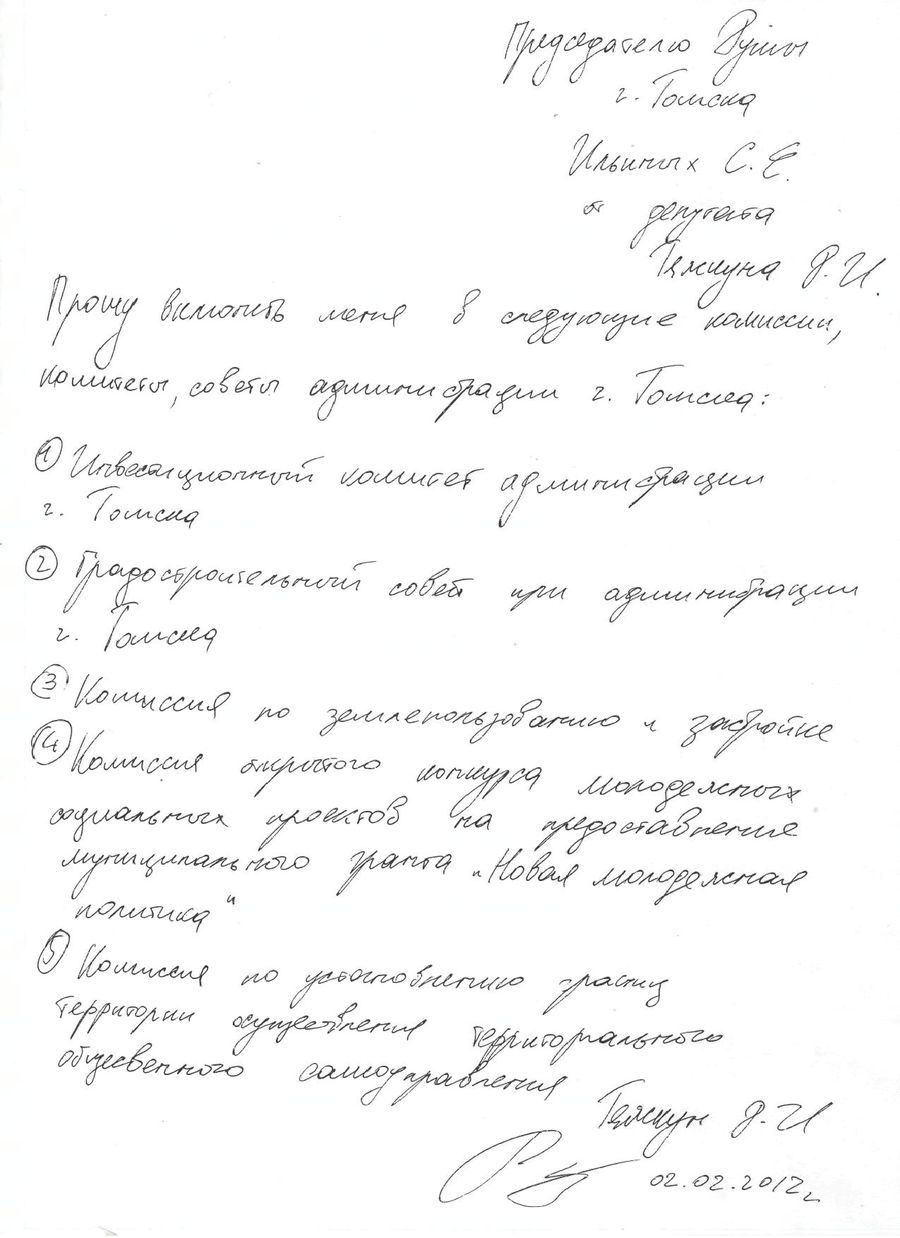 Председателю Думы
г. Томска
Ильиных С. Е.
от депутата
Тямкуна Р. И.
Прошу включить меня в следующие комиссии,
комитеты, советы администрации г. Томска:
1 Инвесиционный комитет администрации
г. Томска
2 Градостроительный совет при администрации
г. Томска
3 Комиссия по землепользованию и застройке
4 Комиссия открытого конкурса молодежных
социальных проектов на предоставление
муниципального гранта "Новая молодежная
политика"
5 Комиссия по установлению границ
территории осуществления территориального
общесвенного самоуправления
Тямкун Р. И
02.02.2012 г